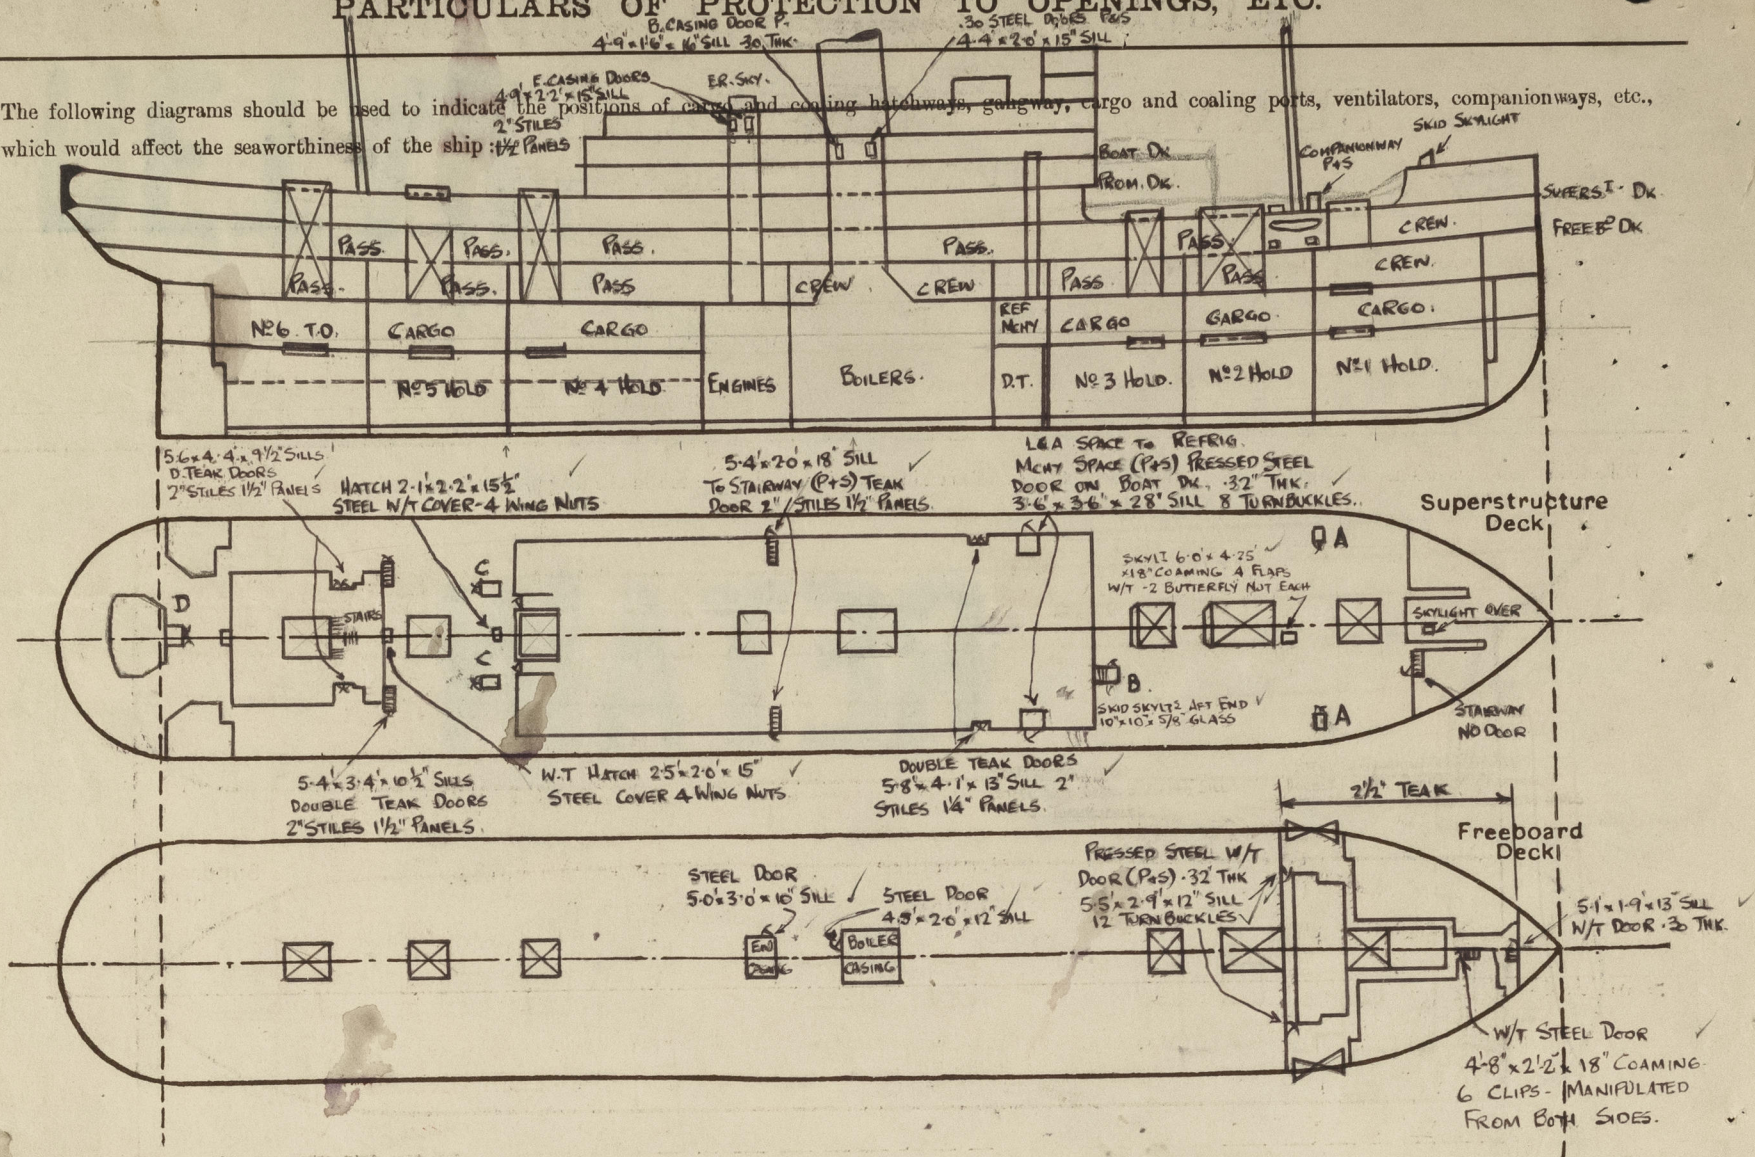 PARTICULARS OF PROTECTION TO OPENINGS, ETC.
B. CASING DOOR P.
4'·9"×1'6"×16" SILL ·30 THK.
·30 STEEL DOORS P&S
4·4'×2·0'×15" SILL
The following diagrams should be used to indicate the positions of cargo and coaling hatchways, gangway, cargo and coaling ports, ventilators, companionways, etc.,
which would affect the seaworthiness of the ship :—
E. CASING DOORS
4·9'×2·2'×15" SILL
2" STILES
1½" PANELS
ER. SKY.
SKID SKYLIGHT
COMPANIONWAY
P+S
BOAT DK
PROM. DK.
SUPERST. DK
FREEBD DK
PASS.
PASS.
PASS.
PASS.
PASS.
CREW.
PASS.
PASS.
PASS
CREW
CREW
PASS
PASS
CREW.
No 6 T.D.
CARGO
CARGO
REF
MCHY
CARGO
CARGO.
CARGO.
No 5 HOLD
No 4 HOLD
ENGINES
BOILERS.
D.T.
No 3 HOLD.
No 2 HOLD
No 1 HOLD.
5·6×4·4'×9½" SILLS
D. TEAK DOORS
2" STILES 1½" PANELS
HATCH 2·1'×2·2'×15½"
STEEL W/T COVER-4 WING NUTS
5·4'×2·0'×18" SILL
TO STAIRWAY (P+S) TEAK
DOOR 2" STILES 1½" PANELS.
L&A SPACE TO REFRIG.
MCHY SPACE (P+S) PRESSED STEEL
DOOR ON BOAT DK. ·32" THK.
3·6'×3·6'×28" SILL 8 TURNBUCKLES.
Superstructure
Deck
SKYLT 6·0'×4·25'
×18" COAMING 4 FLAPS
W/T -2 BUTTERFLY NUT EACH
A
C
D
STAIRS
SKYLIGHT OVER
C
B.
SKID SKYLTS AFT END
10"×10"×5/8" GLASS
A
STAIRWAY
NO DOOR
5·4'×3·4'×10½" SILLS
DOUBLE TEAK DOORS
2" STILES 1½" PANELS.
W.T HATCH 2·5'×2·0'×15"
STEEL COVER 4 WING NUTS
DOUBLE TEAK DOORS
5·8'×4·1'×13" SILL 2"
STILES 1¼" PANELS.
2½" TEAK
Freeboard
Deck
STEEL DOOR
5·0'×3·0'×10" SILL
STEEL DOOR
4·9'×2·0'×12" SILL
PRESSED STEEL W/T
DOOR (P+S) ·32" THK
5·5'×2·9'×12" SILL
12 TURNBUCKLES
5·1'×1·9×13" SILL
W/T DOOR ·30 THK.
BOILER
CASING
W/T STEEL DOOR
4'-8"×2'-2"×18" COAMING
6 CLIPS - MANIPULATED
FROM BOTH SIDES.